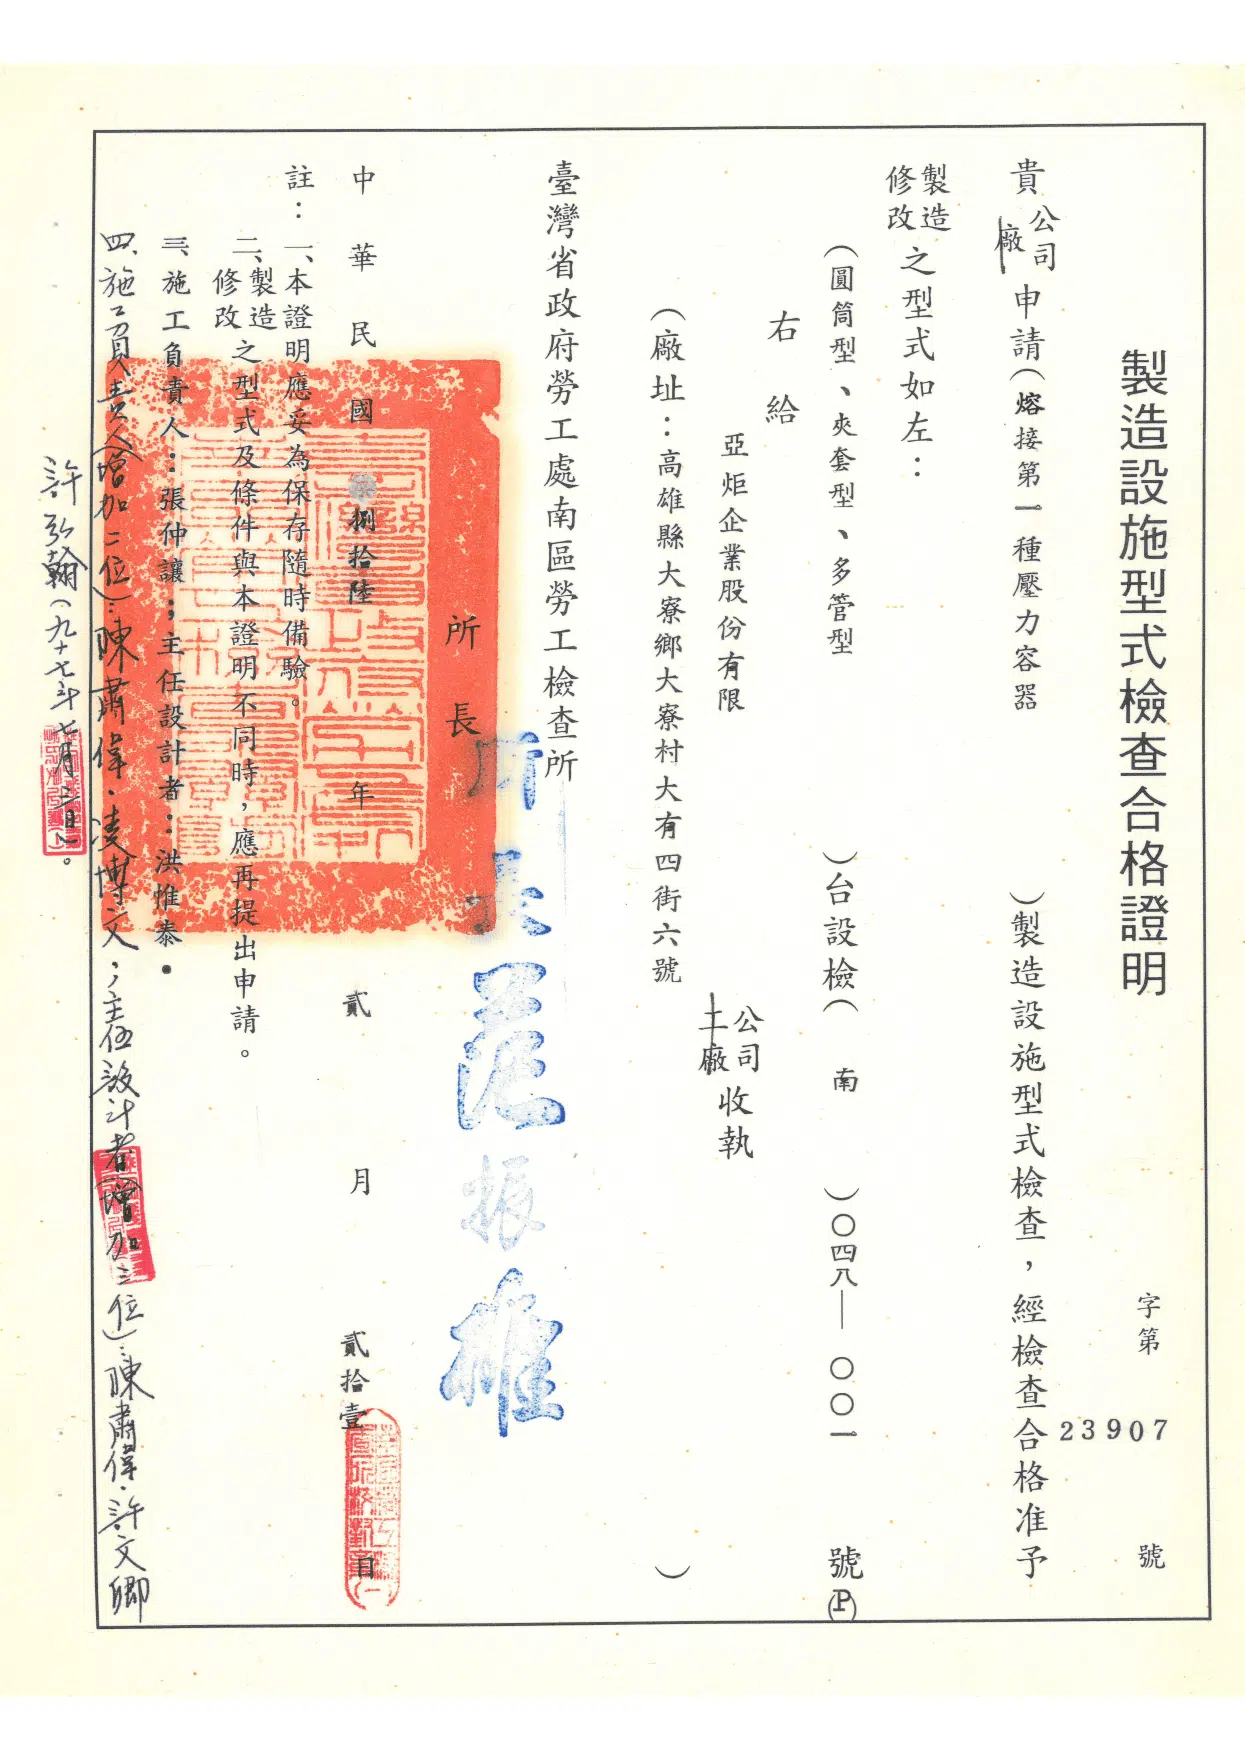 製造設施型式檢查合格證明
字第 23907 號
貴公司廠申請（熔接第一種壓力容器）製造設施型式檢查，經檢查合格准予
製造修改之型式如左：
（圓筒型、夾套型、多管型）台設檢（南）〇四八—〇〇一號(P)
右給
亞炬企業股份有限公司工廠收執
（廠址：高雄縣大寮鄉大寮村大有四街六號）
臺灣省政府勞工處南區勞工檢查所
所長
所長 范振雄
中華民國捌拾陸年貳月貳拾壹日
註：一、本證明應妥為保存隨時備驗。
二、製造修改之型式及條件與本證明不同時，應再提出申請。
三、施工負責人：張仲讓；主任設計者：洪惟泰．
四、施工負責人(增加二位)：陳肅偉．凌博文；主任設計者(增加三位)：陳肅偉．許文卿
許弘翰(九十七年七月三日)。